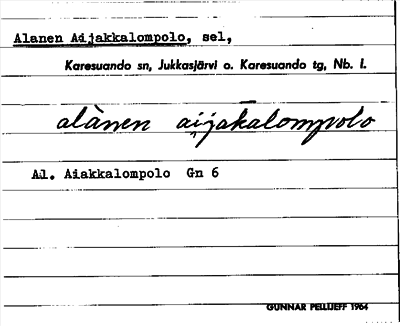 Alanen Aijakkalompolo, sel,
Karesuando sn, Jukkasjärvi o. Karesuando tg, Nb. l.
alànen aijakalompolo
Al. Aiakkalompolo Gn 6
GUNNAR PELLIJEFF 1964